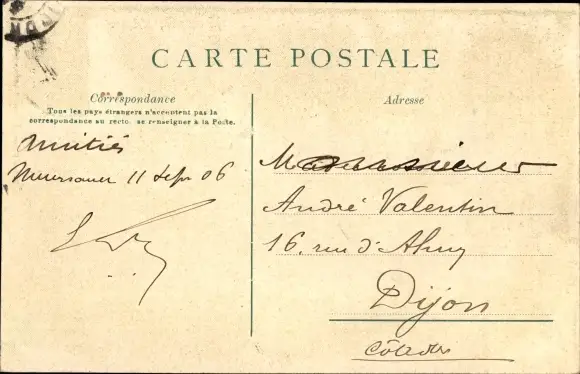 CARTE POSTALE
Correspondance
Tous les pays étrangers n'acceptent pas la
correspondance au recto, se renseigner à la Poste.
Amitiés
11 Sep 06
Adresse
André Valentin
16, rue d'Ahuy
Dijon